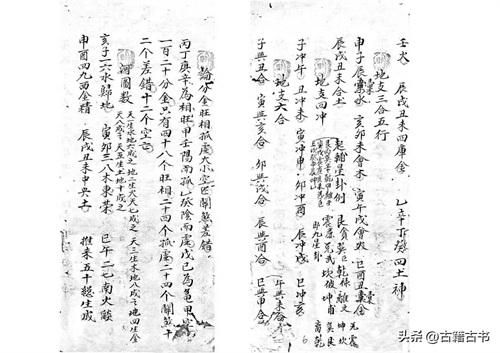 辰戌丑未四庫金 乙辛丁癸四土神
地支三合五行
申子辰會水 亥卯未會木 寅午戌會火 巳酉丑會金
辰戌丑未合土 起翰星卦例 艮貪巽巨乾祿離文
地支四冲 震廉兌武坎破坤
子冲午 丑冲未 寅冲申 卯冲酉 辰冲戌 巳冲亥
地支六合
子與丑合 寅與亥合 卯與戌合 辰與酉合 巳與申合
午與未合
論分金旺相孤虛大小空亡關煞差錯
丙丁庚辛為相旺甲壬陽南孤乙癸陰南虛戊己為龜甲空
一百二十分金只有四十八个旺相二十四个孤虛二十四个關煞十
二个差錯十二个空亡
河圖數 天一生水地六成之 地二生火天七成之 天三生木地八成之 地四生金
天九成之 天五生土地十成之
亥子一六水歸地 寅卯三八木東榮 巳午二七南火燄
申酉四九西金精 辰戌丑未中央土 推來五十總生成
头条 @古籍古书